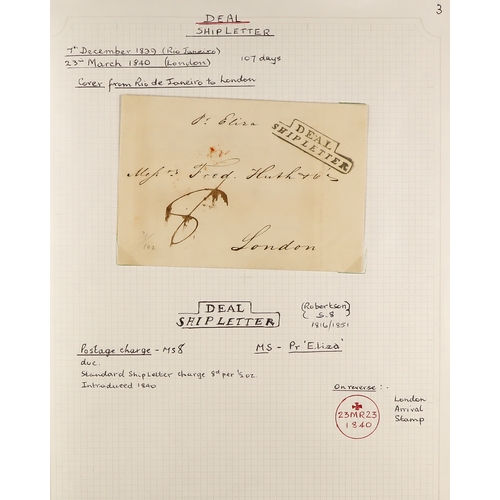 3
DEAL
SHIP LETTER
7th December 1839 (Rio Janeiro)
23rd March 1840 (London) 107 days
Cover from Rio de Janeiro to London
Pr Eliza
DEAL
SHIP LETTER
Messrs Fred. Huth & Co
8
London
DEAL
SHIP LETTER
(Robertson)
S.8
1816/1851
Postage charge - MS 8
due.
MS - Pr 'Eliza'
Standard Ship Letter charge 8d per ½oz.
Introduced 1840
On reverse :-
23MR23
1840
London
Arrival
Stamp